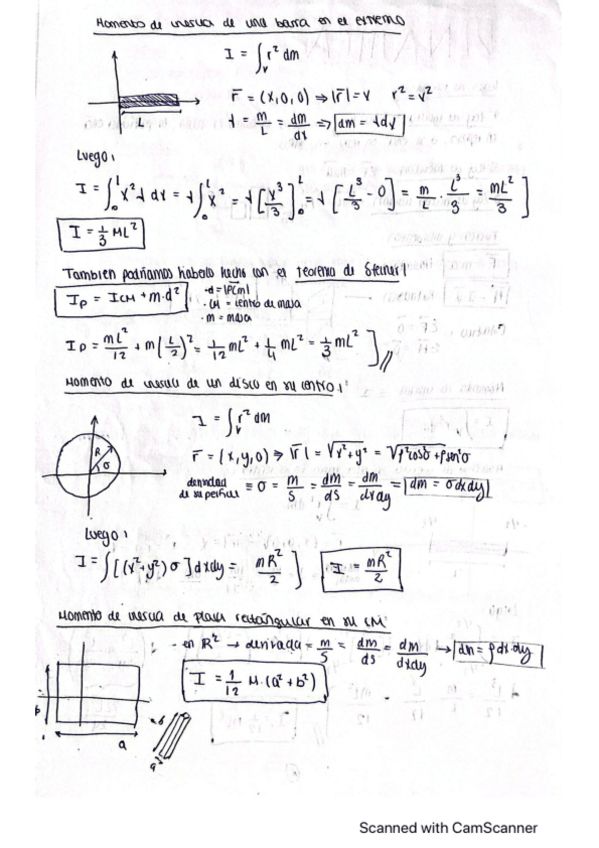 Momento de inercia de una barra en el extremo
I = ∫ᵥ r² dm
r̄ = (x,0,0) ⇒ |r̄| = x r² = x²
L
λ = m/L = dm/dx ⇒ dm = λdx
Luego:
I = ∫₀ᴸ x² λ dx = λ∫₀ᴸ x² = λ[x³/3]₀ᴸ = λ[L³/3 - 0] = m/L · L³/3 = mL²/3]
I = 1/3 ML²
Tambien podriamos haberlo hecho con el teorema de Steiner!
I_P = I_CM + m·d²
-d = |PCM|
-CM = centro de masa
-m = masa
I_P = mL²/12 + m(L/2)² = 1/12 mL² + 1/4 mL² = 1/3 mL² ]//
Momento de inercia de un disco en su centro:
I = ∫ᵥ r² dm
R σ
r̄ = (x,y,0) ⇒ |r̄| = √x²+y² = √ρ²cosσ+ρsen²σ
densidad de superficie ≡ σ = m/S = dm/ds = dm/dxdy = dm = σdxdy
Luego:
I = ∫[(x²+y²)σ]dxdy = mR²/2 ] I = mR²/2
Momento de inercia de placa rectangular en su CM:
- en R² → derivada = m/S = dm/ds = dm/dxdy → dm = ρdx·dy
I = 1/12 M·(a²+b²)
b
a
b
a
Scanned with CamScanner